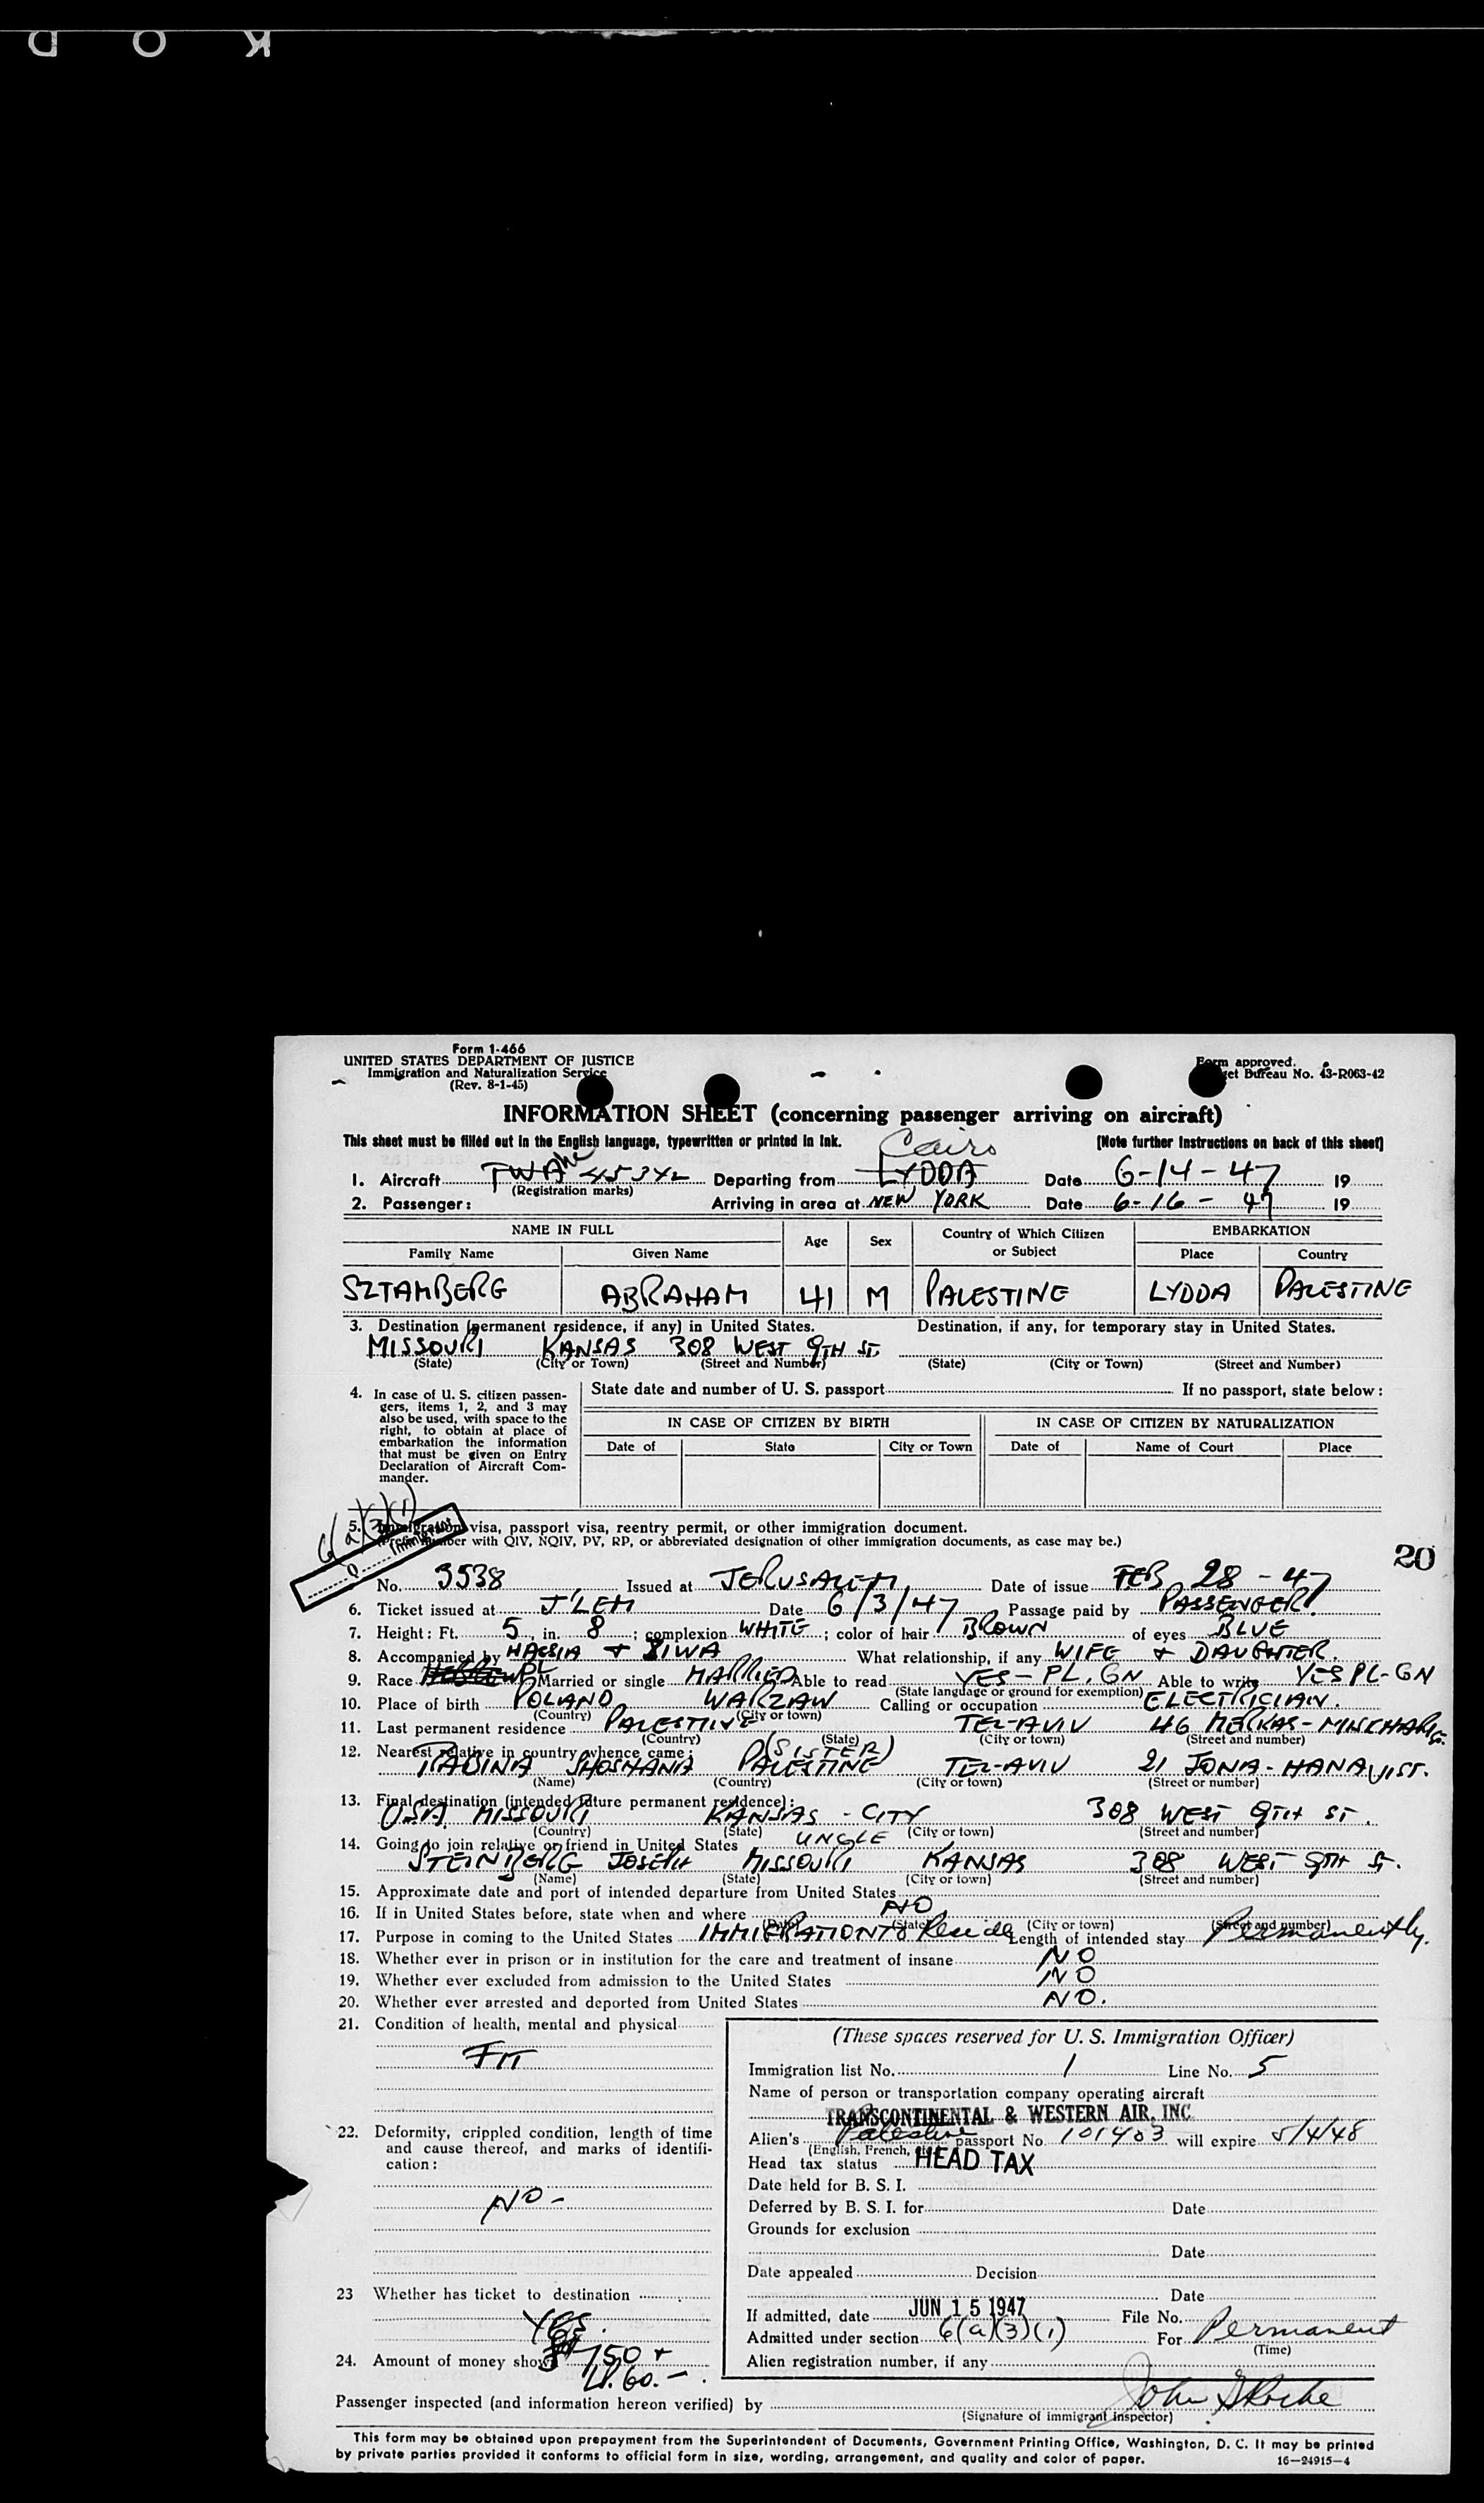 K O D
Form I-466
UNITED STATES DEPARTMENT OF JUSTICE
Immigration and Naturalization Service
(Rev. 8-1-45)
Form approved.
Budget Bureau No. 43-R063-42
INFORMATION SHEET (concerning passenger arriving on aircraft)
This sheet must be filled out in the English language, typewritten or printed in ink.
[Note further instructions on back of this sheet]
Cairo
1. Aircraft TWA 45342 Departing from LYDDA Date 6-14-47 19
(Registration marks)
2. Passenger: Arriving in area at NEW YORK Date 6-16-47 19
NAME IN FULL Age Sex Country of Which Citizen or Subject EMBARKATION
Family Name Given Name Place Country
SZTAMBERG ABRAHAM 41 M PALESTINE LYDDA PALESTINE
3. Destination (permanent residence, if any) in United States. Destination, if any, for temporary stay in United States.
MISSOURI KANSAS 308 WEST 9TH ST.
(State) (City or Town) (Street and Number) (State) (City or Town) (Street and Number)
4. In case of U. S. citizen passengers, items 1, 2, and 3 may also be used, with space to the right, to obtain at place of embarkation the information that must be given on Entry Declaration of Aircraft Commander.
State date and number of U. S. passport If no passport, state below:
IN CASE OF CITIZEN BY BIRTH IN CASE OF CITIZEN BY NATURALIZATION
Date of State City or Town Date of Name of Court Place
6(a)(3)(1)
Q Immigrant
5. Immigration visa, passport visa, reentry permit, or other immigration document.
(Prefix number with QIV, NQIV, PV, RP, or abbreviated designation of other immigration documents, as case may be.)
20
No. 3538 Issued at JERUSALEM Date of issue FEB 28-47
6. Ticket issued at J'LEM Date 6/3/47 Passage paid by PASSENGER
7. Height: Ft. 5, in. 8; complexion WHITE; color of hair BROWN of eyes BLUE
8. Accompanied by HASSIA + ZIWA What relationship, if any WIFE + DAUGHTER.
9. Race HEBREW PL Married or single MARRIED Able to read YES-PL, GN Able to write YES PL-GN
(State language or ground for exemption)
10. Place of birth POLAND WARZAW Calling or occupation ELECTRICIAN.
(Country) (City or town)
11. Last permanent residence PALESTINE TEL-AVIV 46 MERKAS-
(Country) (State) (City or town) (Street and number)
12. Nearest relative in country whence came: (SISTER)
RABINA SHOSHANA PALESTINE TEL-AVIV 21 JONA-HANAVI ST.
(Name) (Country) (City or town) (Street or number)
13. Final destination (intended future permanent residence):
USA MISSOURI KANSAS-CITY 308 WEST 9TH ST.
(Country) (State) (City or town) (Street and number)
14. Going to join relative or friend in United States UNCLE
STEINBERG JOSEPH MISSOURI KANSAS 308 WEST 9TH ST.
(Name) (State) (City or town) (Street and number)
15. Approximate date and port of intended departure from United States
16. If in United States before, state when and where NO
(Date) (State) (City or town) (Street and number)
17. Purpose in coming to the United States IMMIGRATION To Reside Length of intended stay Permanently.
18. Whether ever in prison or in institution for the care and treatment of insane NO
19. Whether ever excluded from admission to the United States NO
20. Whether ever arrested and deported from United States NO.
21. Condition of health, mental and physical
FIT
22. Deformity, crippled condition, length of time and cause thereof, and marks of identification:
NO-
23 Whether has ticket to destination
YES.
24. Amount of money shown $ 150 +
LP. 60.-
(These spaces reserved for U. S. Immigration Officer)
Immigration list No. 1 Line No. 5
Name of person or transportation company operating aircraft
TRANSCONTINENTAL & WESTERN AIR, INC
Alien's Palestine passport No. 101403 will expire 5/4/48
(English, French, etc.)
Head tax status HEAD TAX
Date held for B. S. I.
Deferred by B. S. I. for Date
Grounds for exclusion
Date
Date appealed Decision
Date
If admitted, date JUN 15 1947 File No.
Admitted under section 6(a)(3)(1) For Permanent
(Time)
Alien registration number, if any
Passenger inspected (and information hereon verified) by John Roche
(Signature of immigrant inspector)
This form may be obtained upon prepayment from the Superintendent of Documents, Government Printing Office, Washington, D. C. It may be printed
by private parties provided it conforms to official form in size, wording, arrangement, and quality and color of paper.
16—24915—4